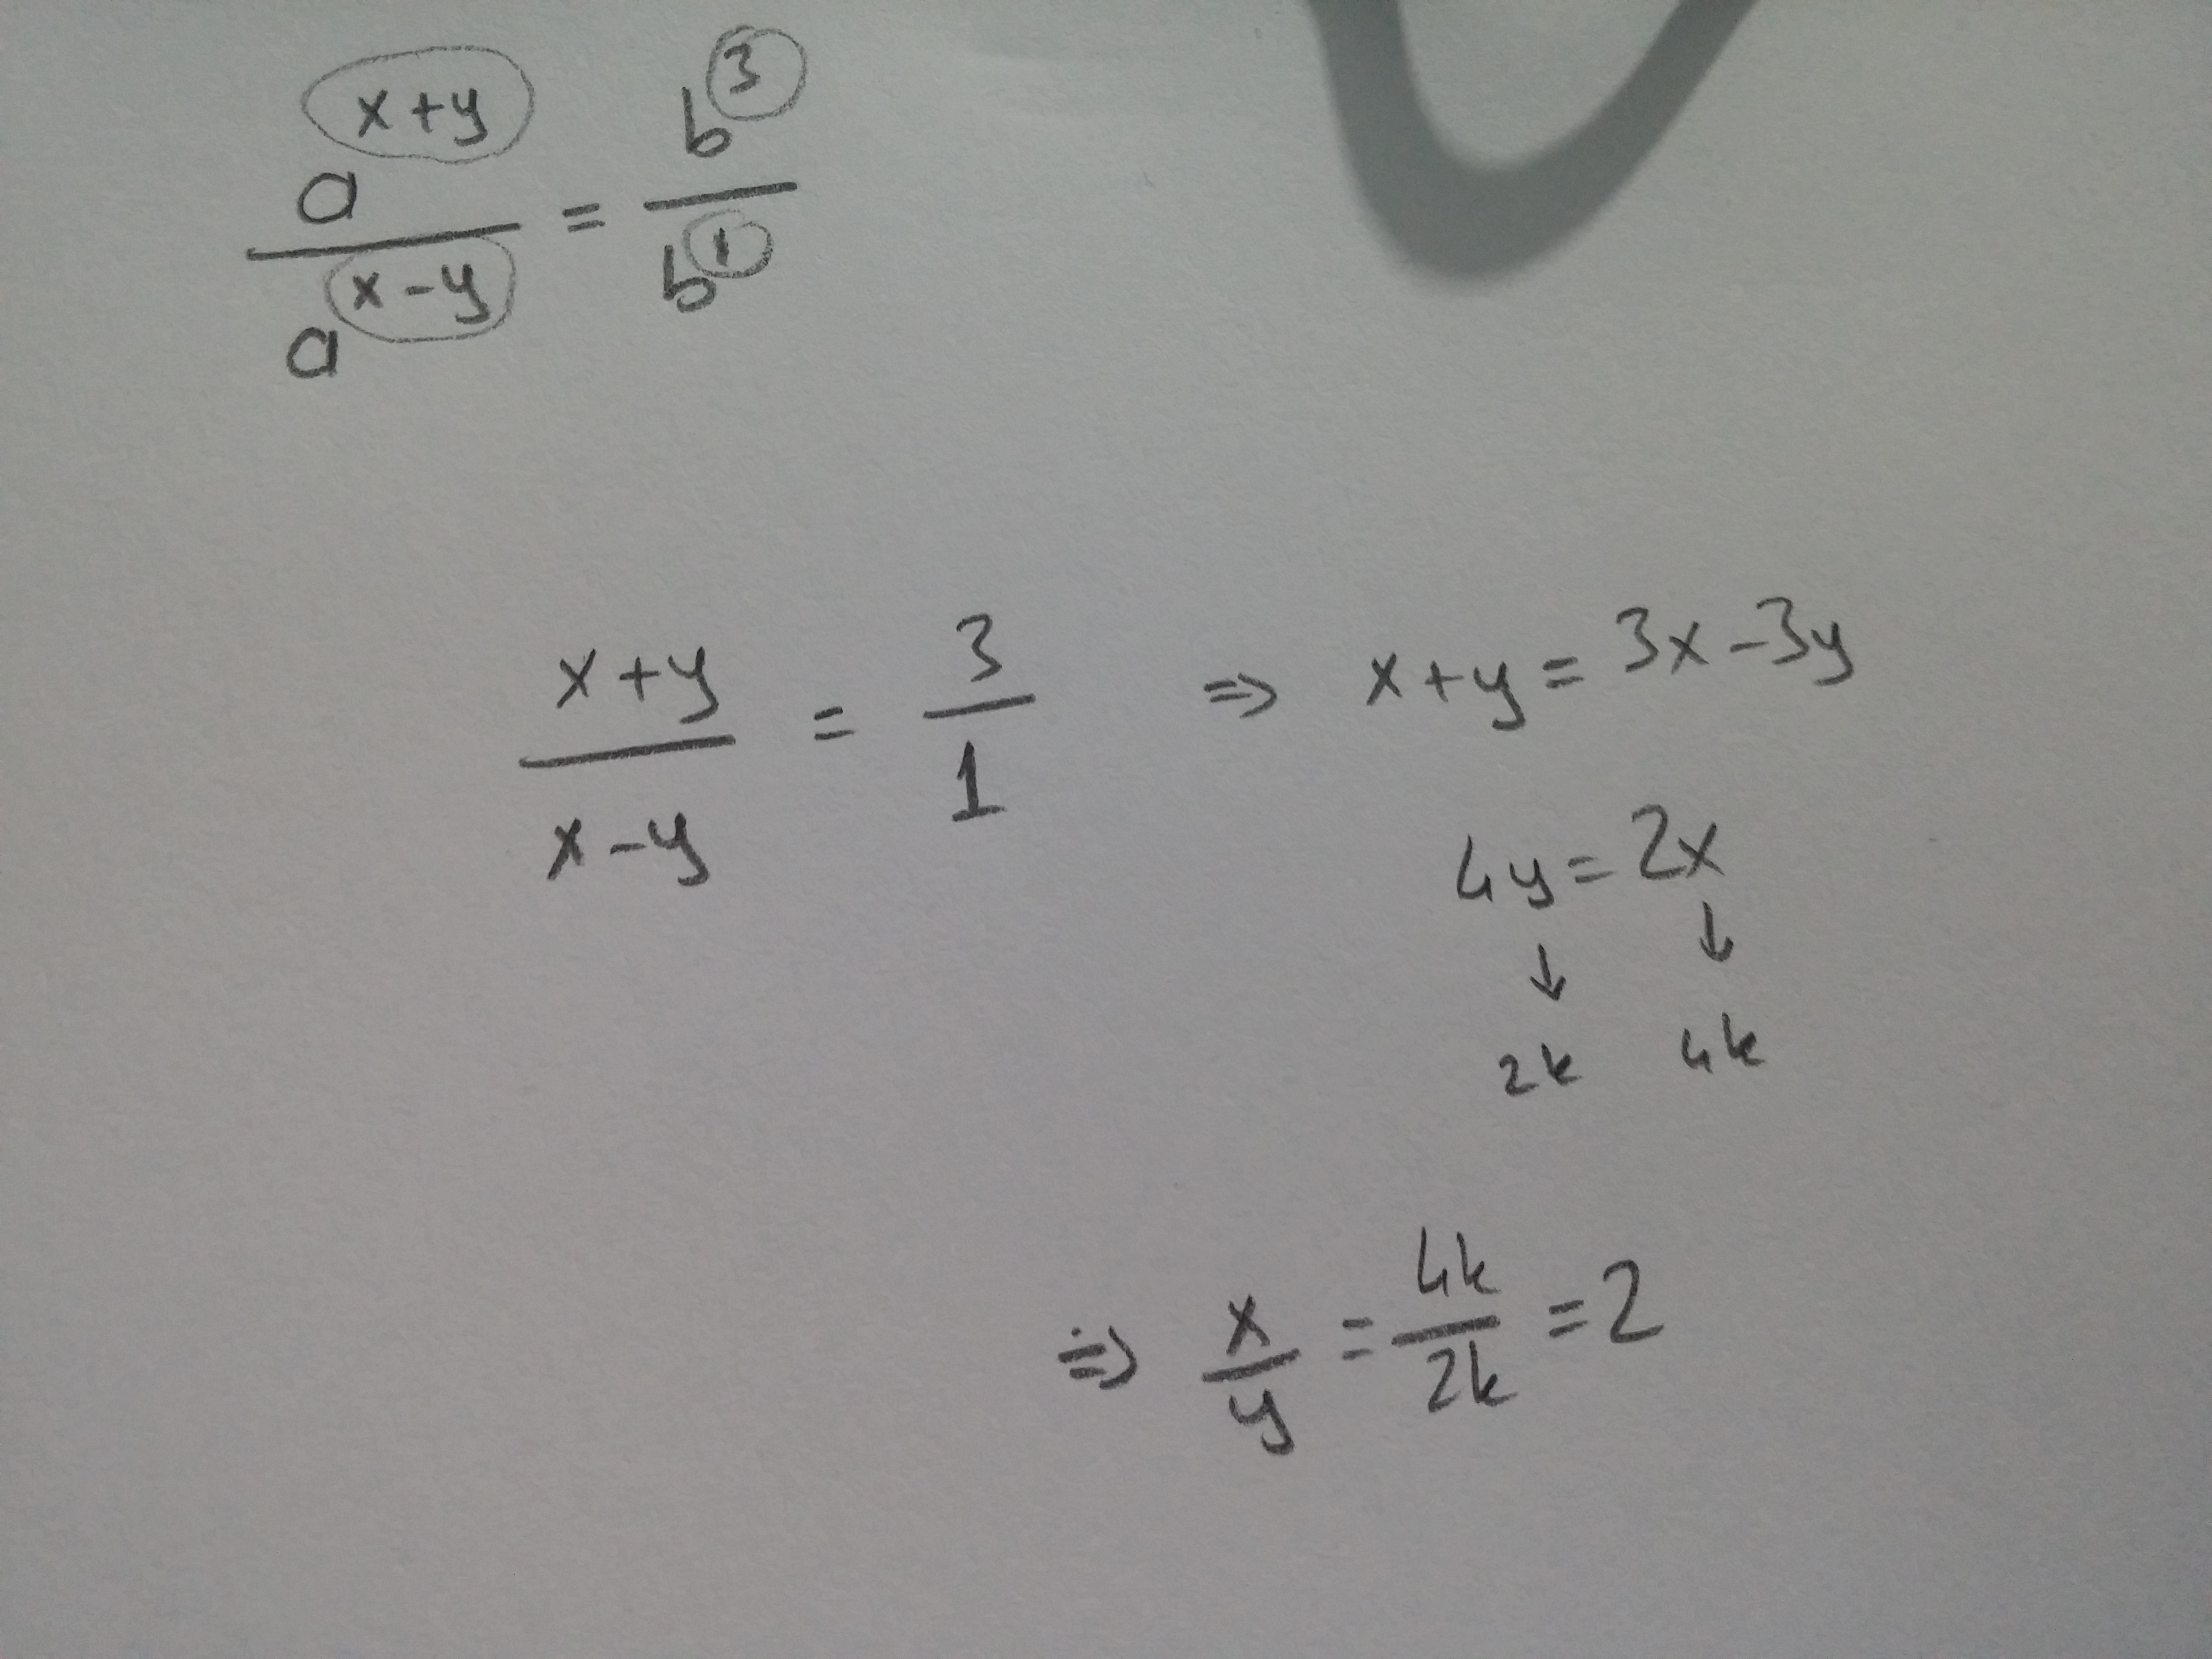 a^(x+y) / a^(x-y) = b^3 / b^1
(x+y) / (x-y) = 3 / 1 ⇒ x+y = 3x-3y
4y = 2x
↓ ↓
2k 4k
⇒ x/y = 4k/2k = 2